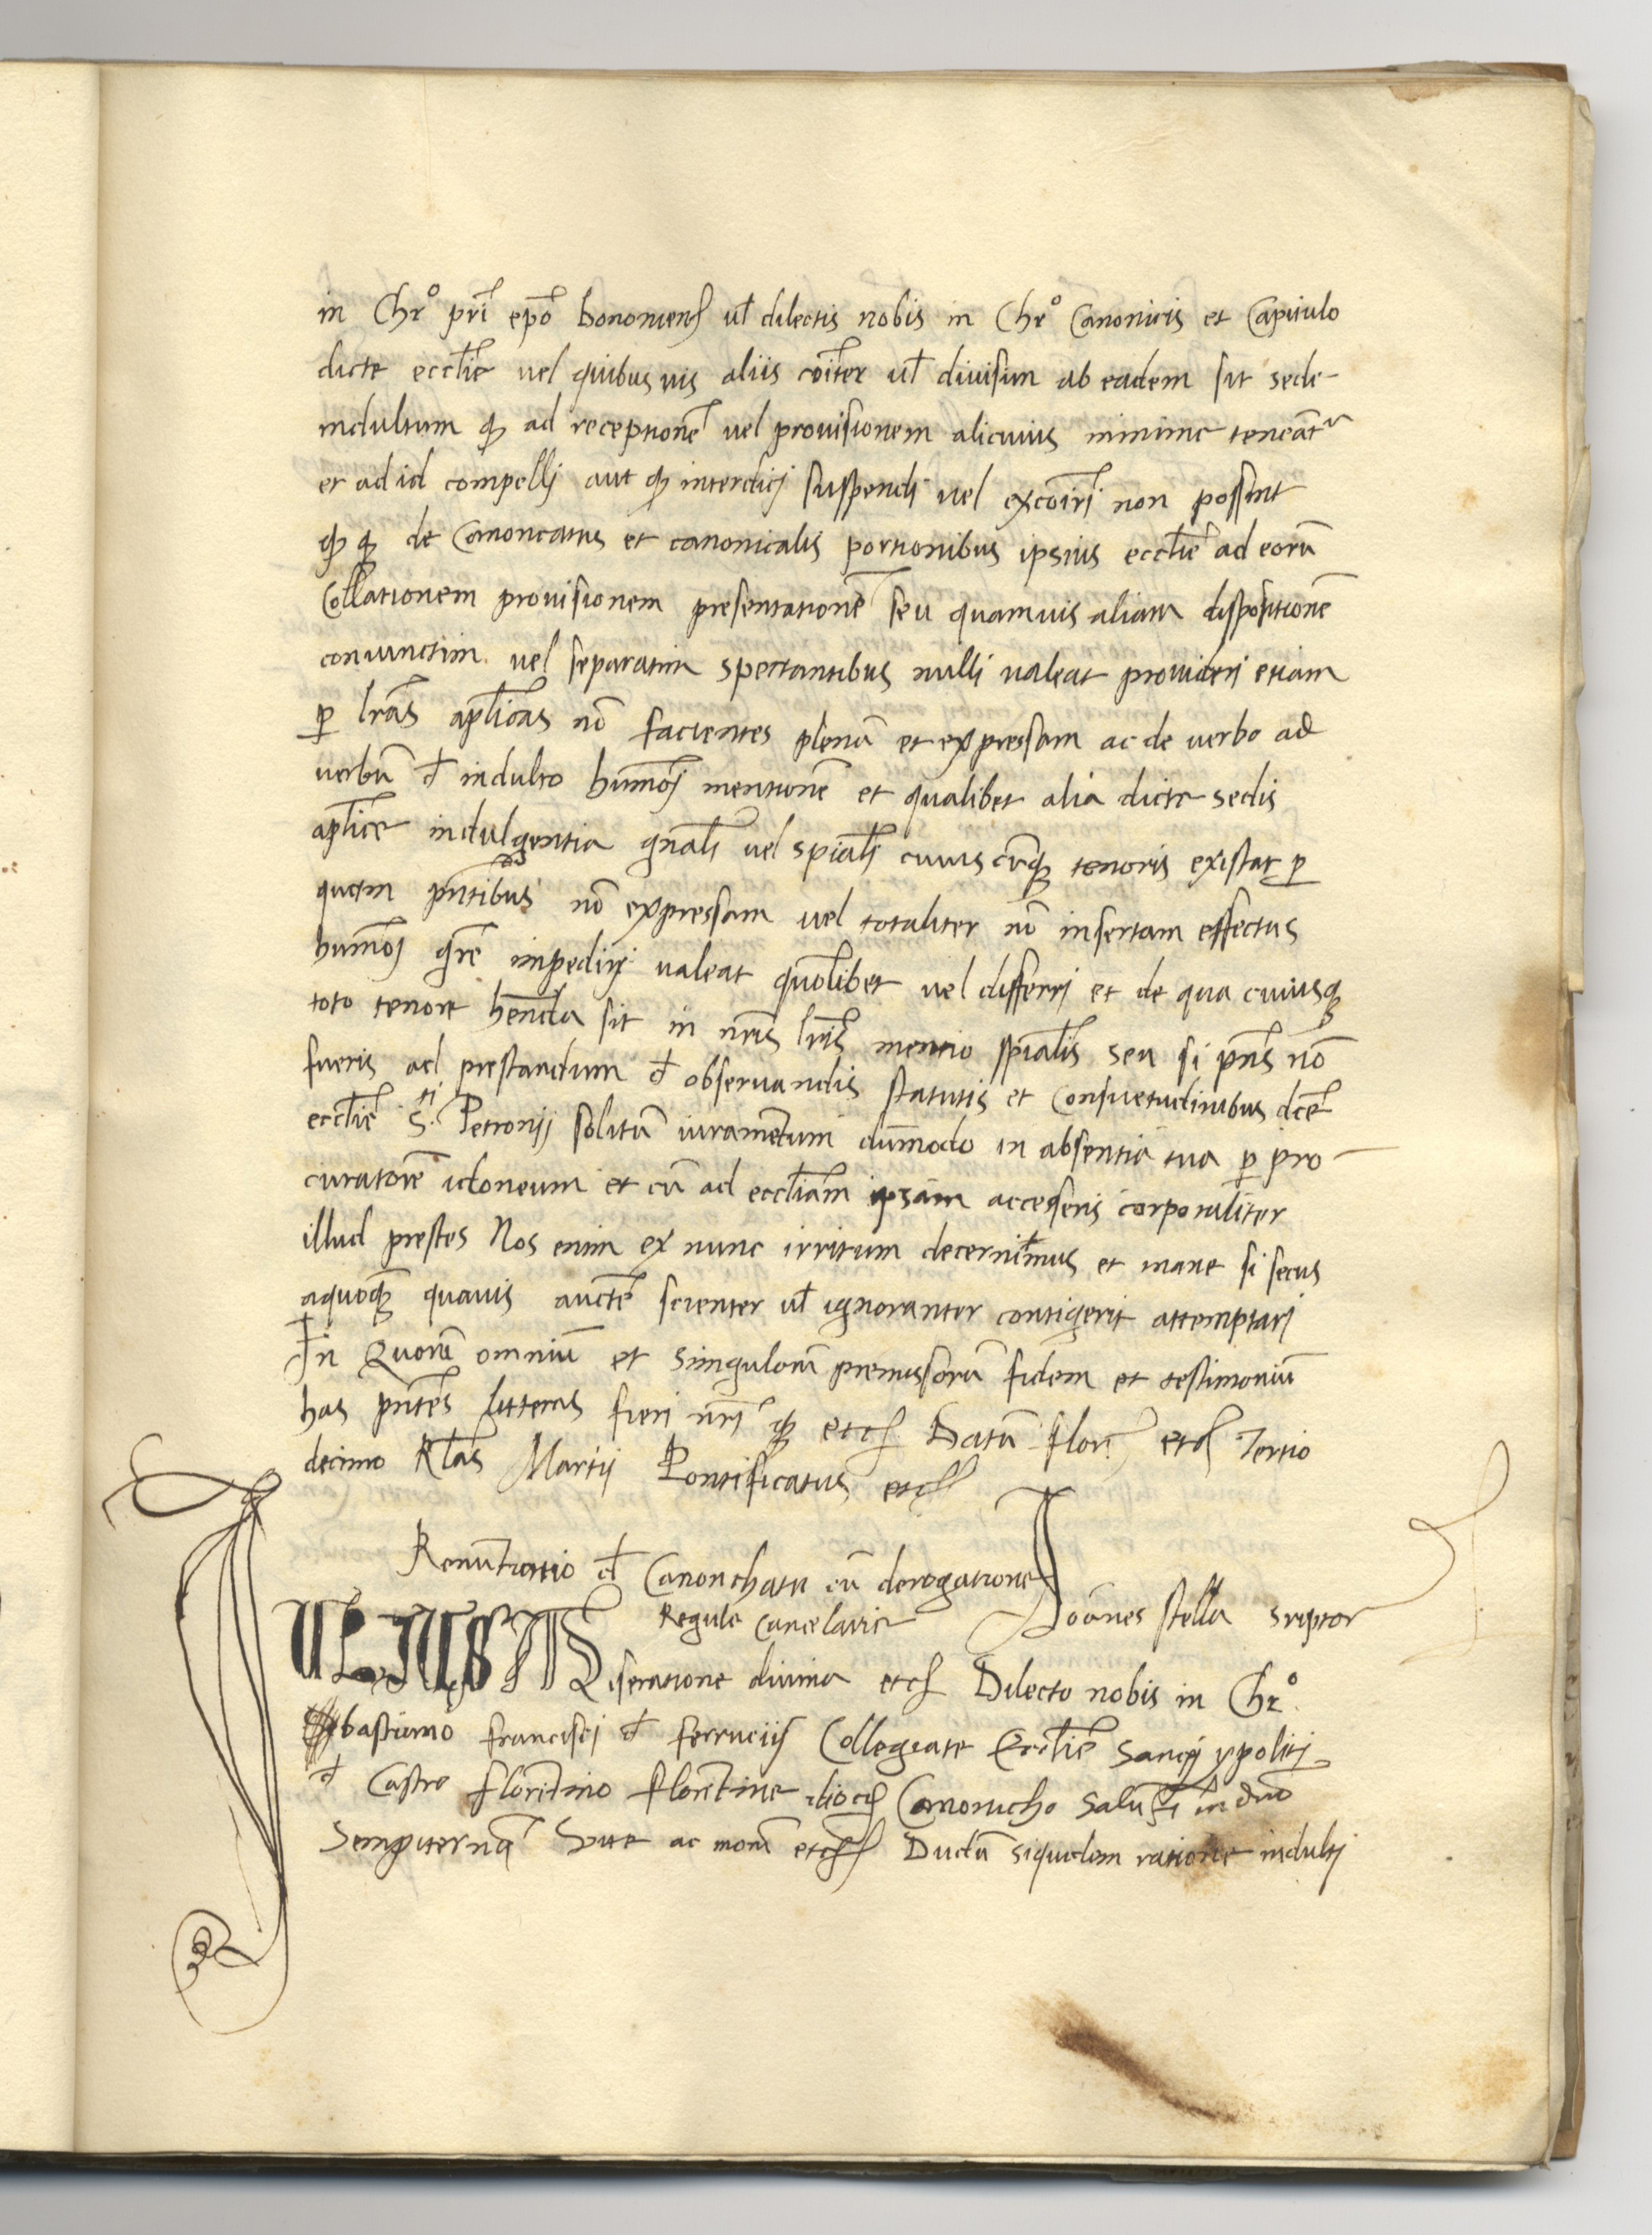 in Chr̊o pr̄i ep̄o bononieñ ul̄ dilectis nobis in Chr̊o Canonicis et Capitulo
dicte eccl̄ie vel quibus vis aliis cōiter ul̄ divisim ab eadem sit sede
indultum q̄ ad receptionē vel provisionem alicuius minime teneāt̄r
et ad id compelli aut q̄ interdici suspendi vel excōīri non possint
q̄ q̄ de Canonicatus et canonicalis portionibus ipsius eccl̄ie ad eorū
Collationem provisionem presentationē seu quamvis aliam dispositionē
coniunctim vel separatim spectantibus nulli valeat provideri etiam
p̱ lr̄as ap̄licas nō facientes plenā et expressam ac de verbo ad
verbū đ indulto huīmoi mentionē et qualibet alia dicte sedis
ap̄lice indulgentia gn̄ali vel sp̄iali cuiuscūq̨ tenoris existat p̱
quam pn̄tibus nō expressam vel totaliter nō insertam effectus
huīmoi gr̄e impediri valeat quōlibet vel differri et de qua cuiusq̨
toto tenore hēnda sit in nr̄is lr̄is mentio sp̄ialis seu si pn̄s nō
fueris ad prestandum đ observandis statutis et Consuetudinibus dc̄e
eccl̄ie S.ti Petronij solitū iuramentum dūmodo in absentia tua p̱ pro-
curatorē idoneum et cū ad eccl̄iam ipsam accesseris corporaliter
illud prestes Nos enim ex nunc irritum decernimus et inane si secus
aquoq̨ quavis auctē scienter ul̄ ignoranter contigerit attemptari
In Quorū omniū et singulorū premissorū fidem et testimoniū
has pn̄tes litteras fieri nr̄i q̨ etc̄ Datū flor̄ etc̄ Tertio
decimo kl̄as Martij Pontificatus etc̄
Renūtiatio đ Canonchatu cū derogatione
Regule cancelarie Joānes stella sriptor
JULIUS Miseratione divina etc̄ Dilecto nobis in Chr̊o
Sebastiano francisci đ ferrucijs Collegiate Eccl̄ie Sancti ypoliti
đ Castro florentino florentine dioc̄ Canonicho Salut̄ in dn̄o
Sempiternā Vite ac morū etc̄ Dudū siquidem ratione indulti